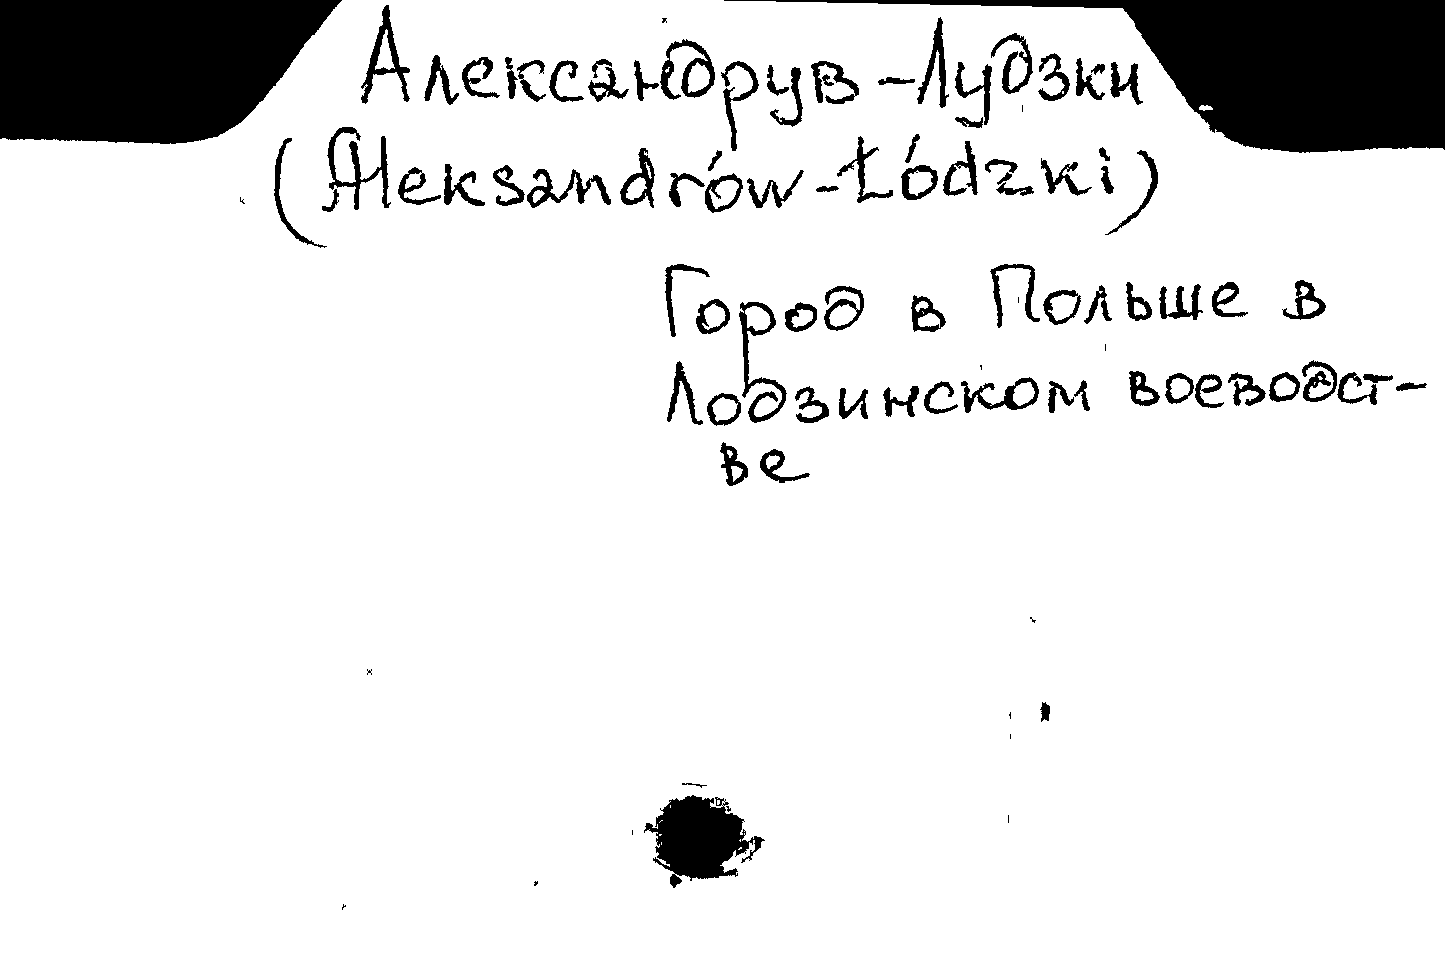 Александрув-Лудзки
(Aleksandrów-Łódzki)
Город в Польше в
Лодзинском воеводст-
ве